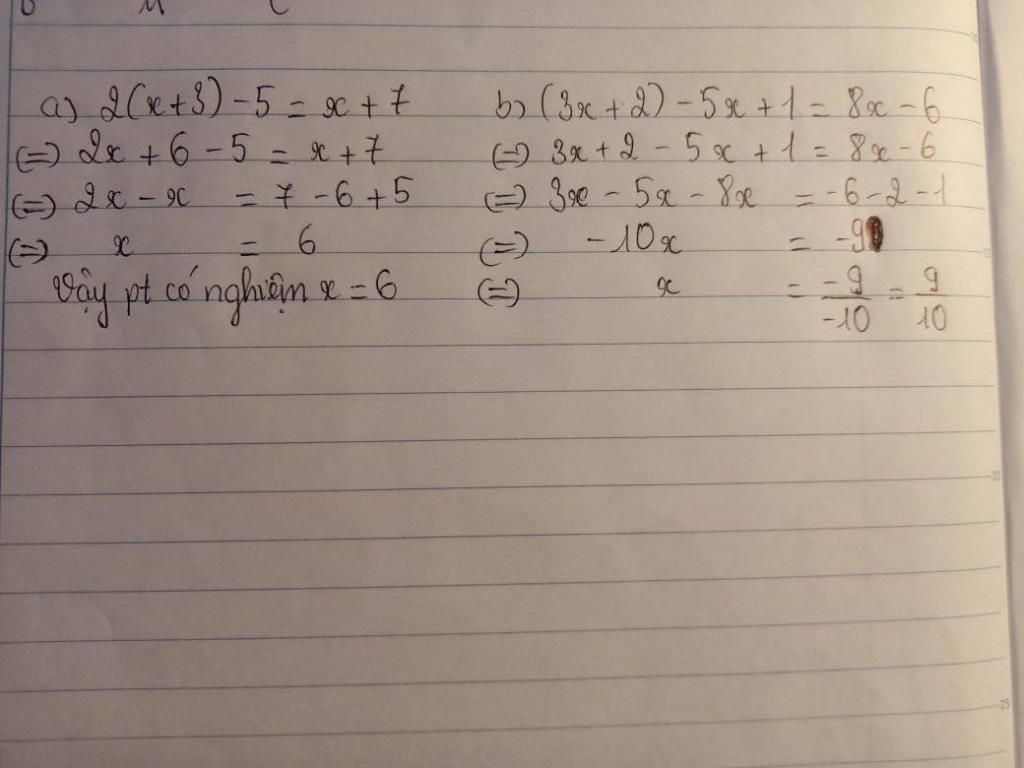 a) 2(x+3) - 5 = x + 7
(=) 2x + 6 - 5 = x + 7
(=) 2x - x = 7 - 6 + 5
(=) x = 6
Vậy pt có nghiệm x = 6
b) (3x + 2) - 5x + 1 = 8x - 6
(=) 3x + 2 - 5x + 1 = 8x - 6
(=) 3x - 5x - 8x = -6 - 2 - 1
(=) -10x = -9
(=) x = -9/-10 = 9/10